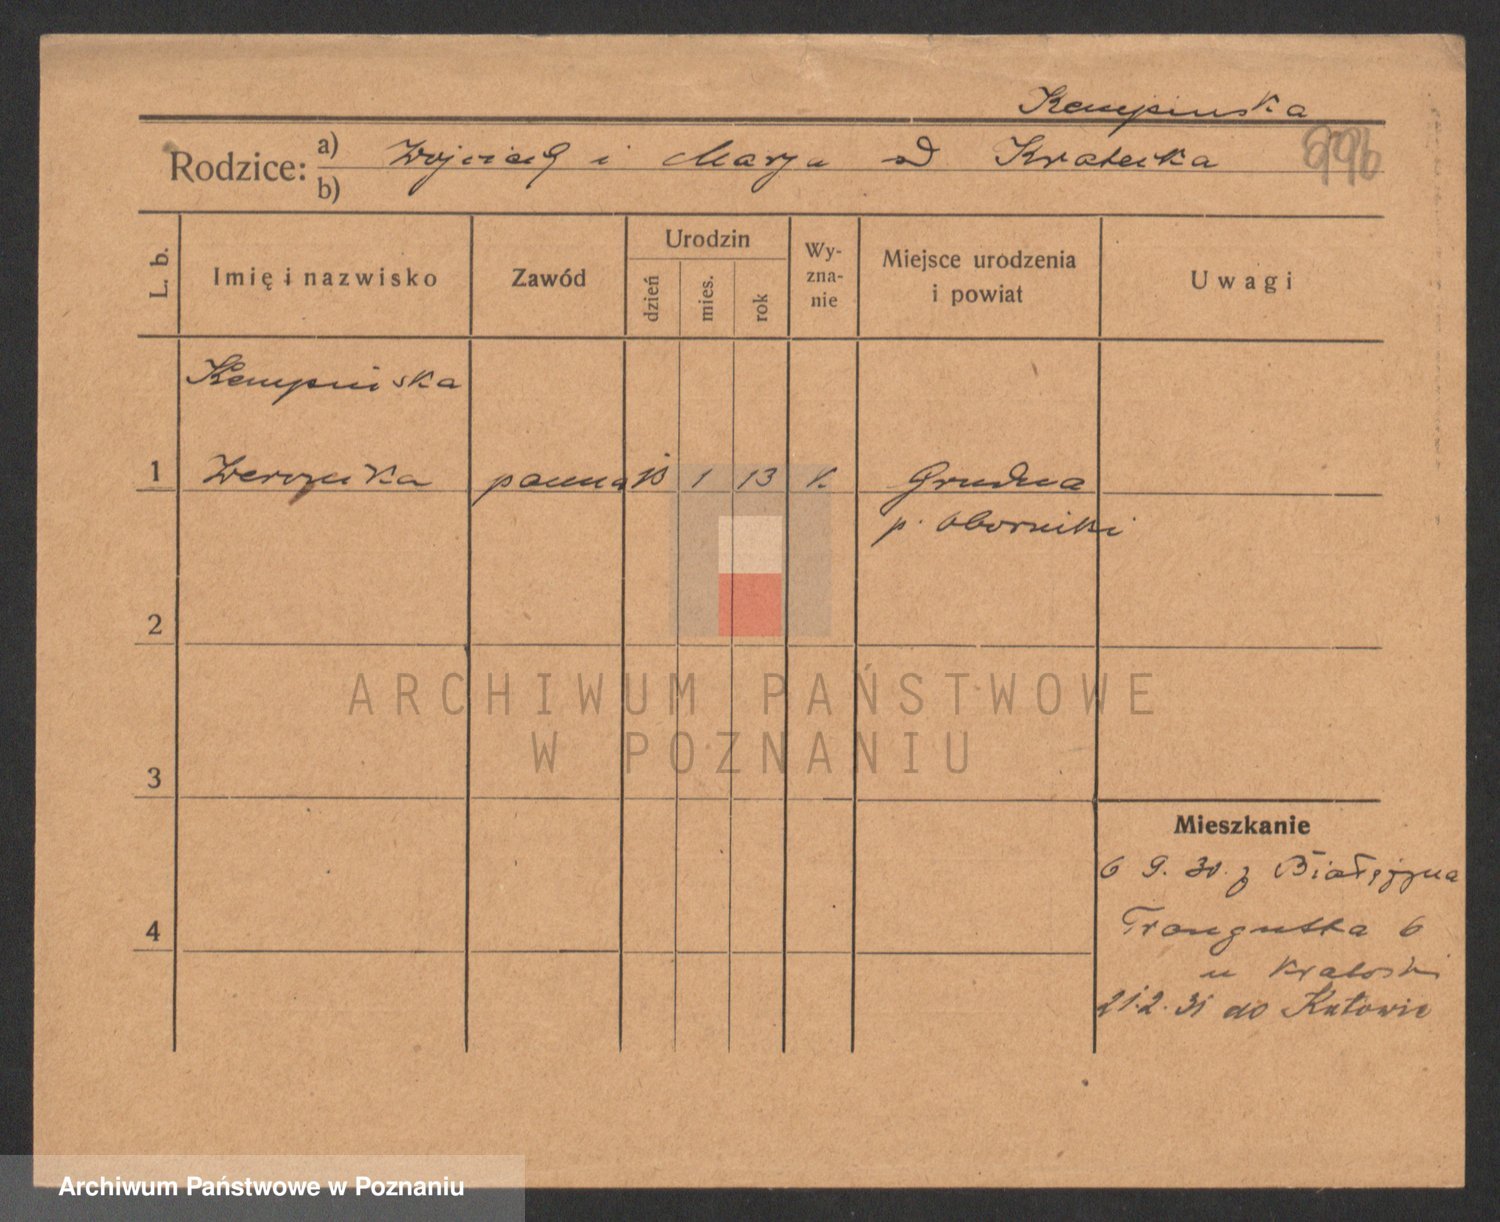 Kempinska
Rodzice: a) Wojciech i Marja d Kratecka 996
b)
L. b. Imię i nazwisko Zawód Urodzin dzień mies. rok Wy-zna-nie Miejsce urodzenia i powiat Uwagi
Kempinska
1 Weronika panna 13 1 13 k. Grudna
p. Oborniki
2
ARCHIWUM PAŃSTWOWE
W POZNANIU
3
Mieszkanie
6 9. 30. z Białężyna
4 Traugutta 6
u
21.2. 31 do Katowic
Archiwum Państwowe w Poznaniu